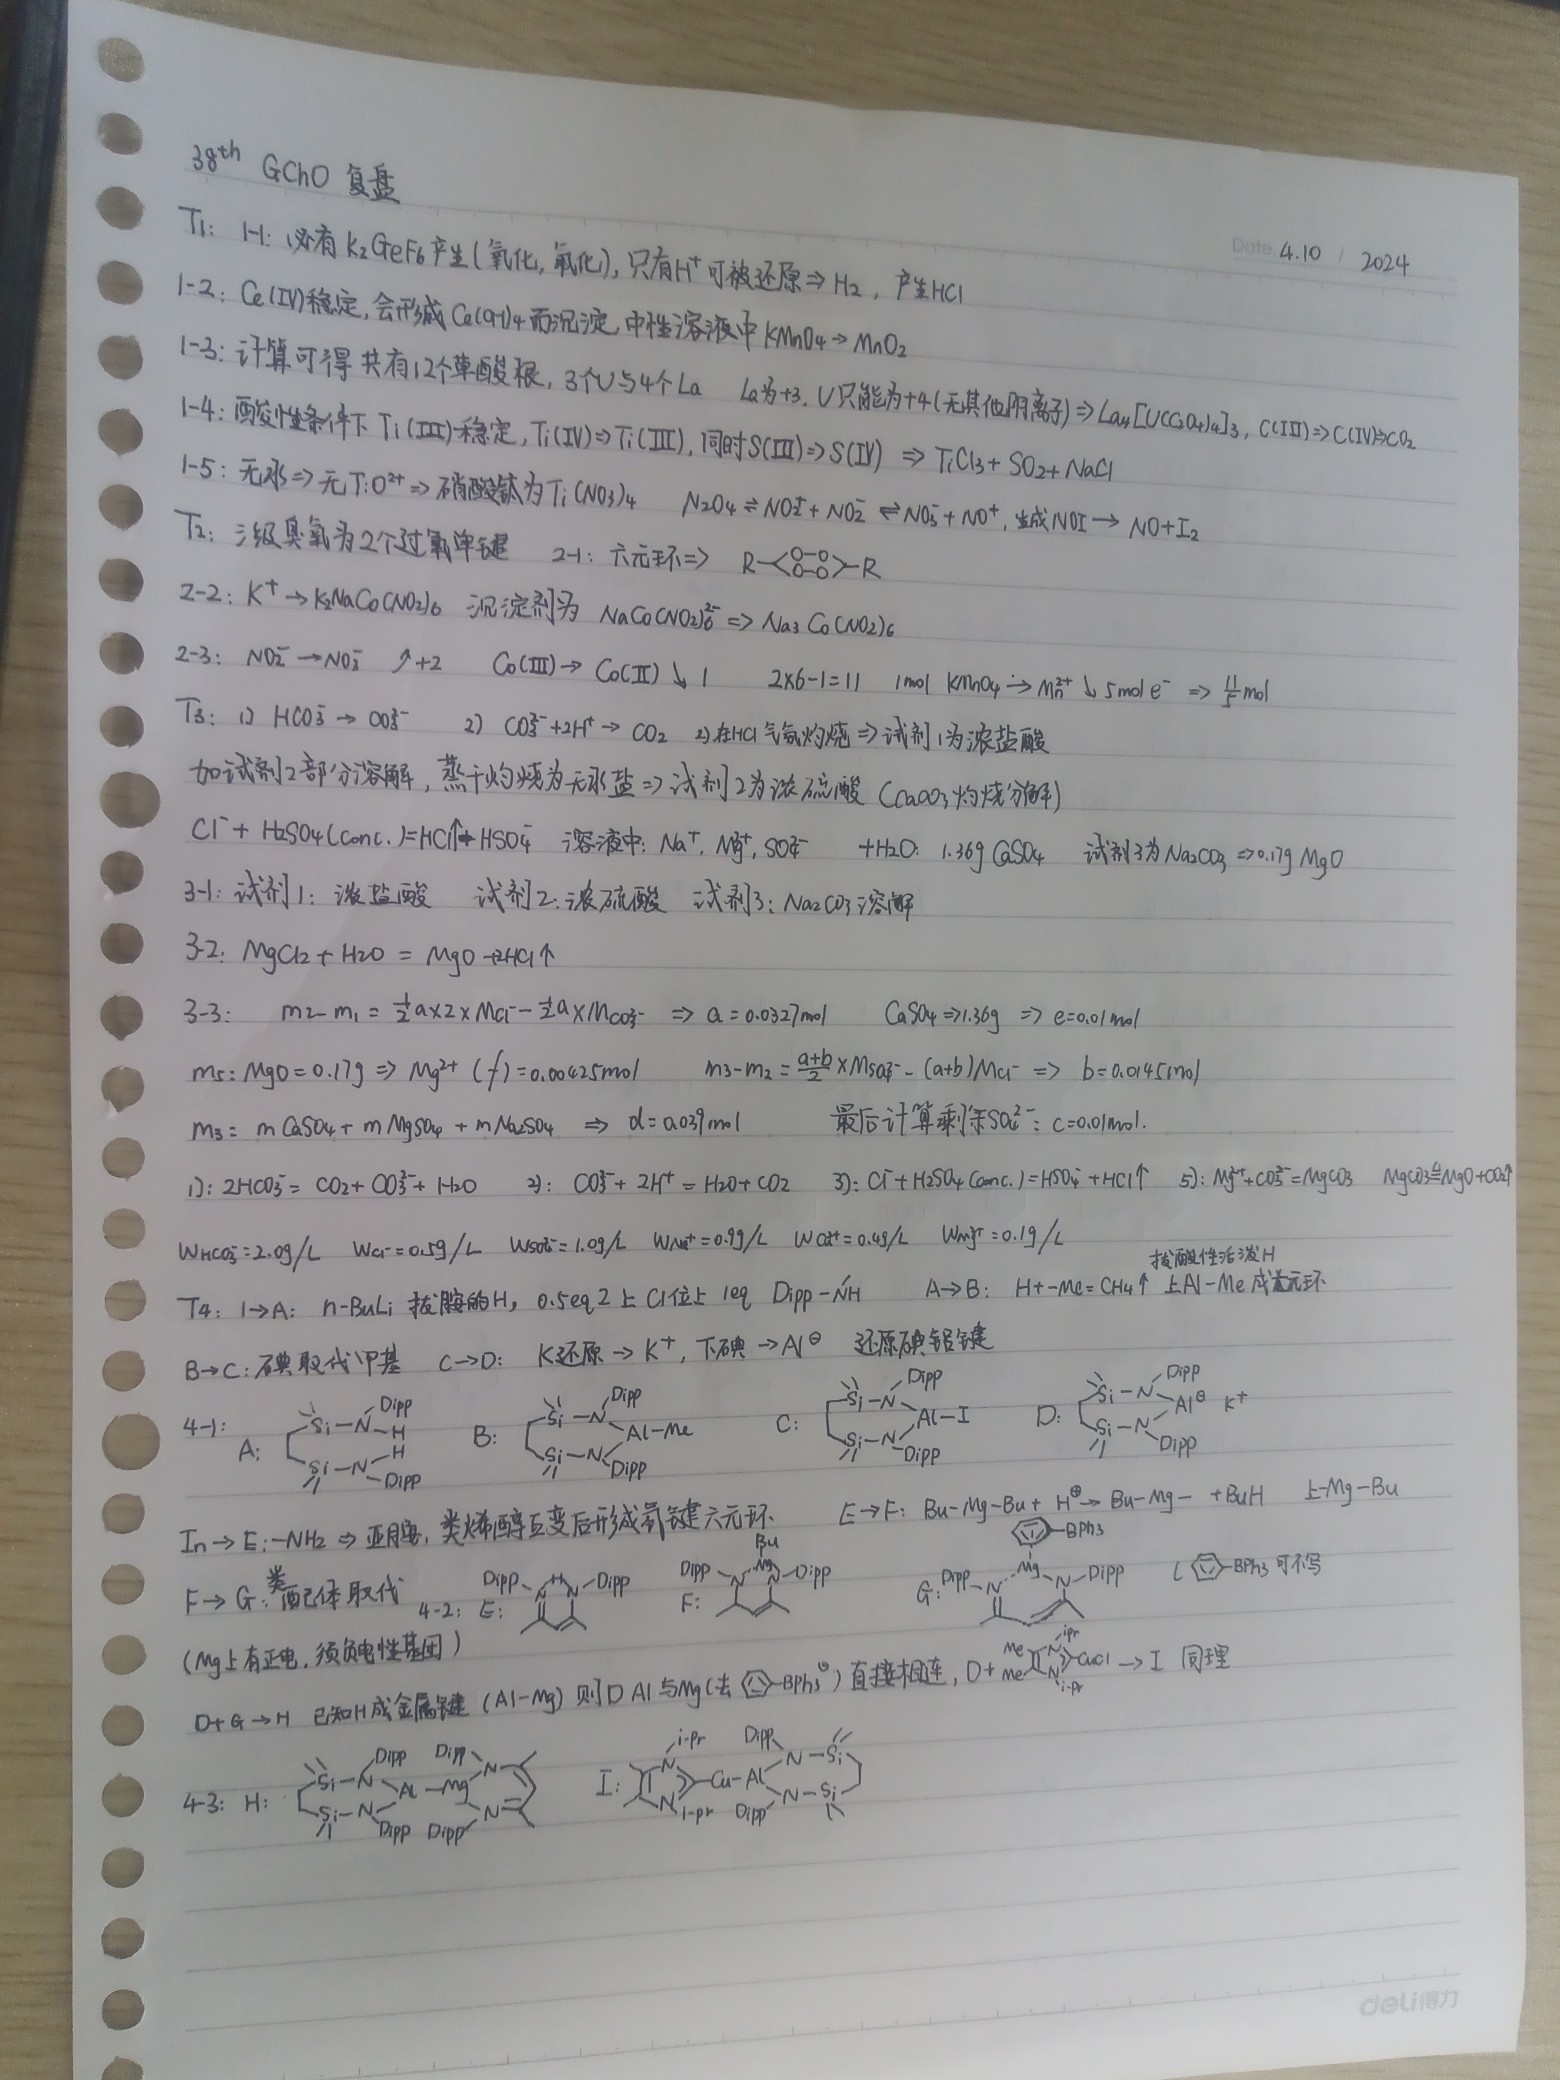 38th GChO 复盘
Date 4.10 / 2024
T1: 1-1: 必有K2GeF6产生(氧化,氟化), 只有H+可被还原⇒H2, 产生HCl
1-2: Ce(IV)稳定,会形成Ce(OH)4而沉淀,中性溶液中KMnO4→MnO2
1-3: 计算可得共有12个草酸根, 3个U与4个La La为+3, U只能为+4(无其他阴离子)⇒La4[U(C2O4)4]3, C(III)⇒C(IV)⇒CO2
1-4: 酸性条件下Ti(III)稳定, Ti(IV)⇒Ti(III), 同时S(III)⇒S(IV) ⇒ TiCl3+SO2+NaCl
1-5: 无水⇒无TiO2+⇒硝酸钛为Ti(NO3)4 N2O4⇌NO2+ + NO2- ⇌NO3-+NO+, 生成NOI→NO+I2
T2: 三级臭氧为2个过氧单键 2-1: 六元环⇒ R-<O-O O-O>-R
2-2: K+→K2NaCo(NO2)6 沉淀剂为 NaCo(NO2)6 2- ⇒ Na3Co(NO2)6
2-3: NO2-→NO3- ↗+2 Co(III)→Co(II)↓1 2×6-1=11 1mol KMnO4→Mn2+↓5mol e- ⇒ 11/5 mol
T3: 1) HCO3-→CO3 2- 2) CO3 2-+2H+→CO2 2)在HCl气氛灼烧⇒试剂1为浓盐酸
加试剂2部分溶解, 蒸干灼烧为无水盐⇒试剂2为浓硫酸 (CaCO3灼烧分解)
Cl-+H2SO4(conc.)=HCl↑+HSO4- 溶液中: Na+, Mg2+, SO4 2- +H2O: 1.36g CaSO4 试剂3为Na2CO3⇒0.17g MgO
3-1: 试剂1: 浓盐酸 试剂2: 浓硫酸 试剂3: Na2CO3溶解
3-2: MgCl2+H2O = MgO+2HCl↑
3-3: m2-m1 = 1/2a×2×MCl- - 1/2a×MCO3 2- ⇒ a=0.0327mol CaSO4⇒1.36g ⇒ e=0.01mol
m5: MgO=0.17g ⇒ Mg2+ (f)=0.00425mol m3-m2 = (a+b)/2×MSO4 2- - (a+b)MCl- ⇒ b=0.0145mol
m3 = mCaSO4 + mMgSO4 + mNa2SO4 ⇒ d=0.039mol 最后计算剩余SO4 2-: c=0.01mol.
1): 2HCO3-=CO2+CO3 2-+H2O 2): CO3 2-+2H+=H2O+CO2 3): Cl-+H2SO4(conc.)=HSO4-+HCl↑ 5): Mg2++CO3 2-=MgCO3 MgCO3=MgO+CO2↑
WHCO3-=2.0g/L WCl-=0.5g/L WSO4 2-=1.0g/L WNa+=0.9g/L WCa2+=0.4g/L WMg2+=0.1g/L
拔酸性活泼H
T4: 1→A: n-BuLi 拔胺的H, 0.5eq 2上Cl位上 1eq Dipp-NH A→B: H+-Me=CH4↑ 上Al-Me成 元环
B→C: 碘取代甲基 C→D: K还原→K+, 下碘→Al⊖ 还原碘铝键
4-1: A: Si-N Dipp H H Si-N Dipp B: Si-N Dipp Al-Me Si-N Dipp C: Si-N Dipp Al-I Si-N Dipp D: Si-N Dipp Al⊖ K+ Si-N Dipp
In→E: -NH2⇒亚胺, 类烯醇互变后形成氢键六元环 E→F: Bu-Mg-Bu+H⊕→Bu-Mg- +BuH 上-Mg-Bu
F→G: 类配体取代 4-2: E: Dipp-N H N-Dipp F: Dipp N Bu Mg N-Dipp G: Dipp-N Mg -BPh3 N-Dipp ( -BPh3可不写
(Mg上有正电, 须负电性基团)
D+G→H 已知H成金属键 (Al-Mg) 则D Al与Mg(去 -BPh3⊖)直接相连, D+ Me Me N i-Pr CuCl N i-Pr →I 同理
4-3: H: Si-N Dipp Al-Mg Dipp N Si-N Dipp Dipp N I: N i-Pr Cu-Al N i-Pr Dipp N-Si Dipp N-Si
deli得力